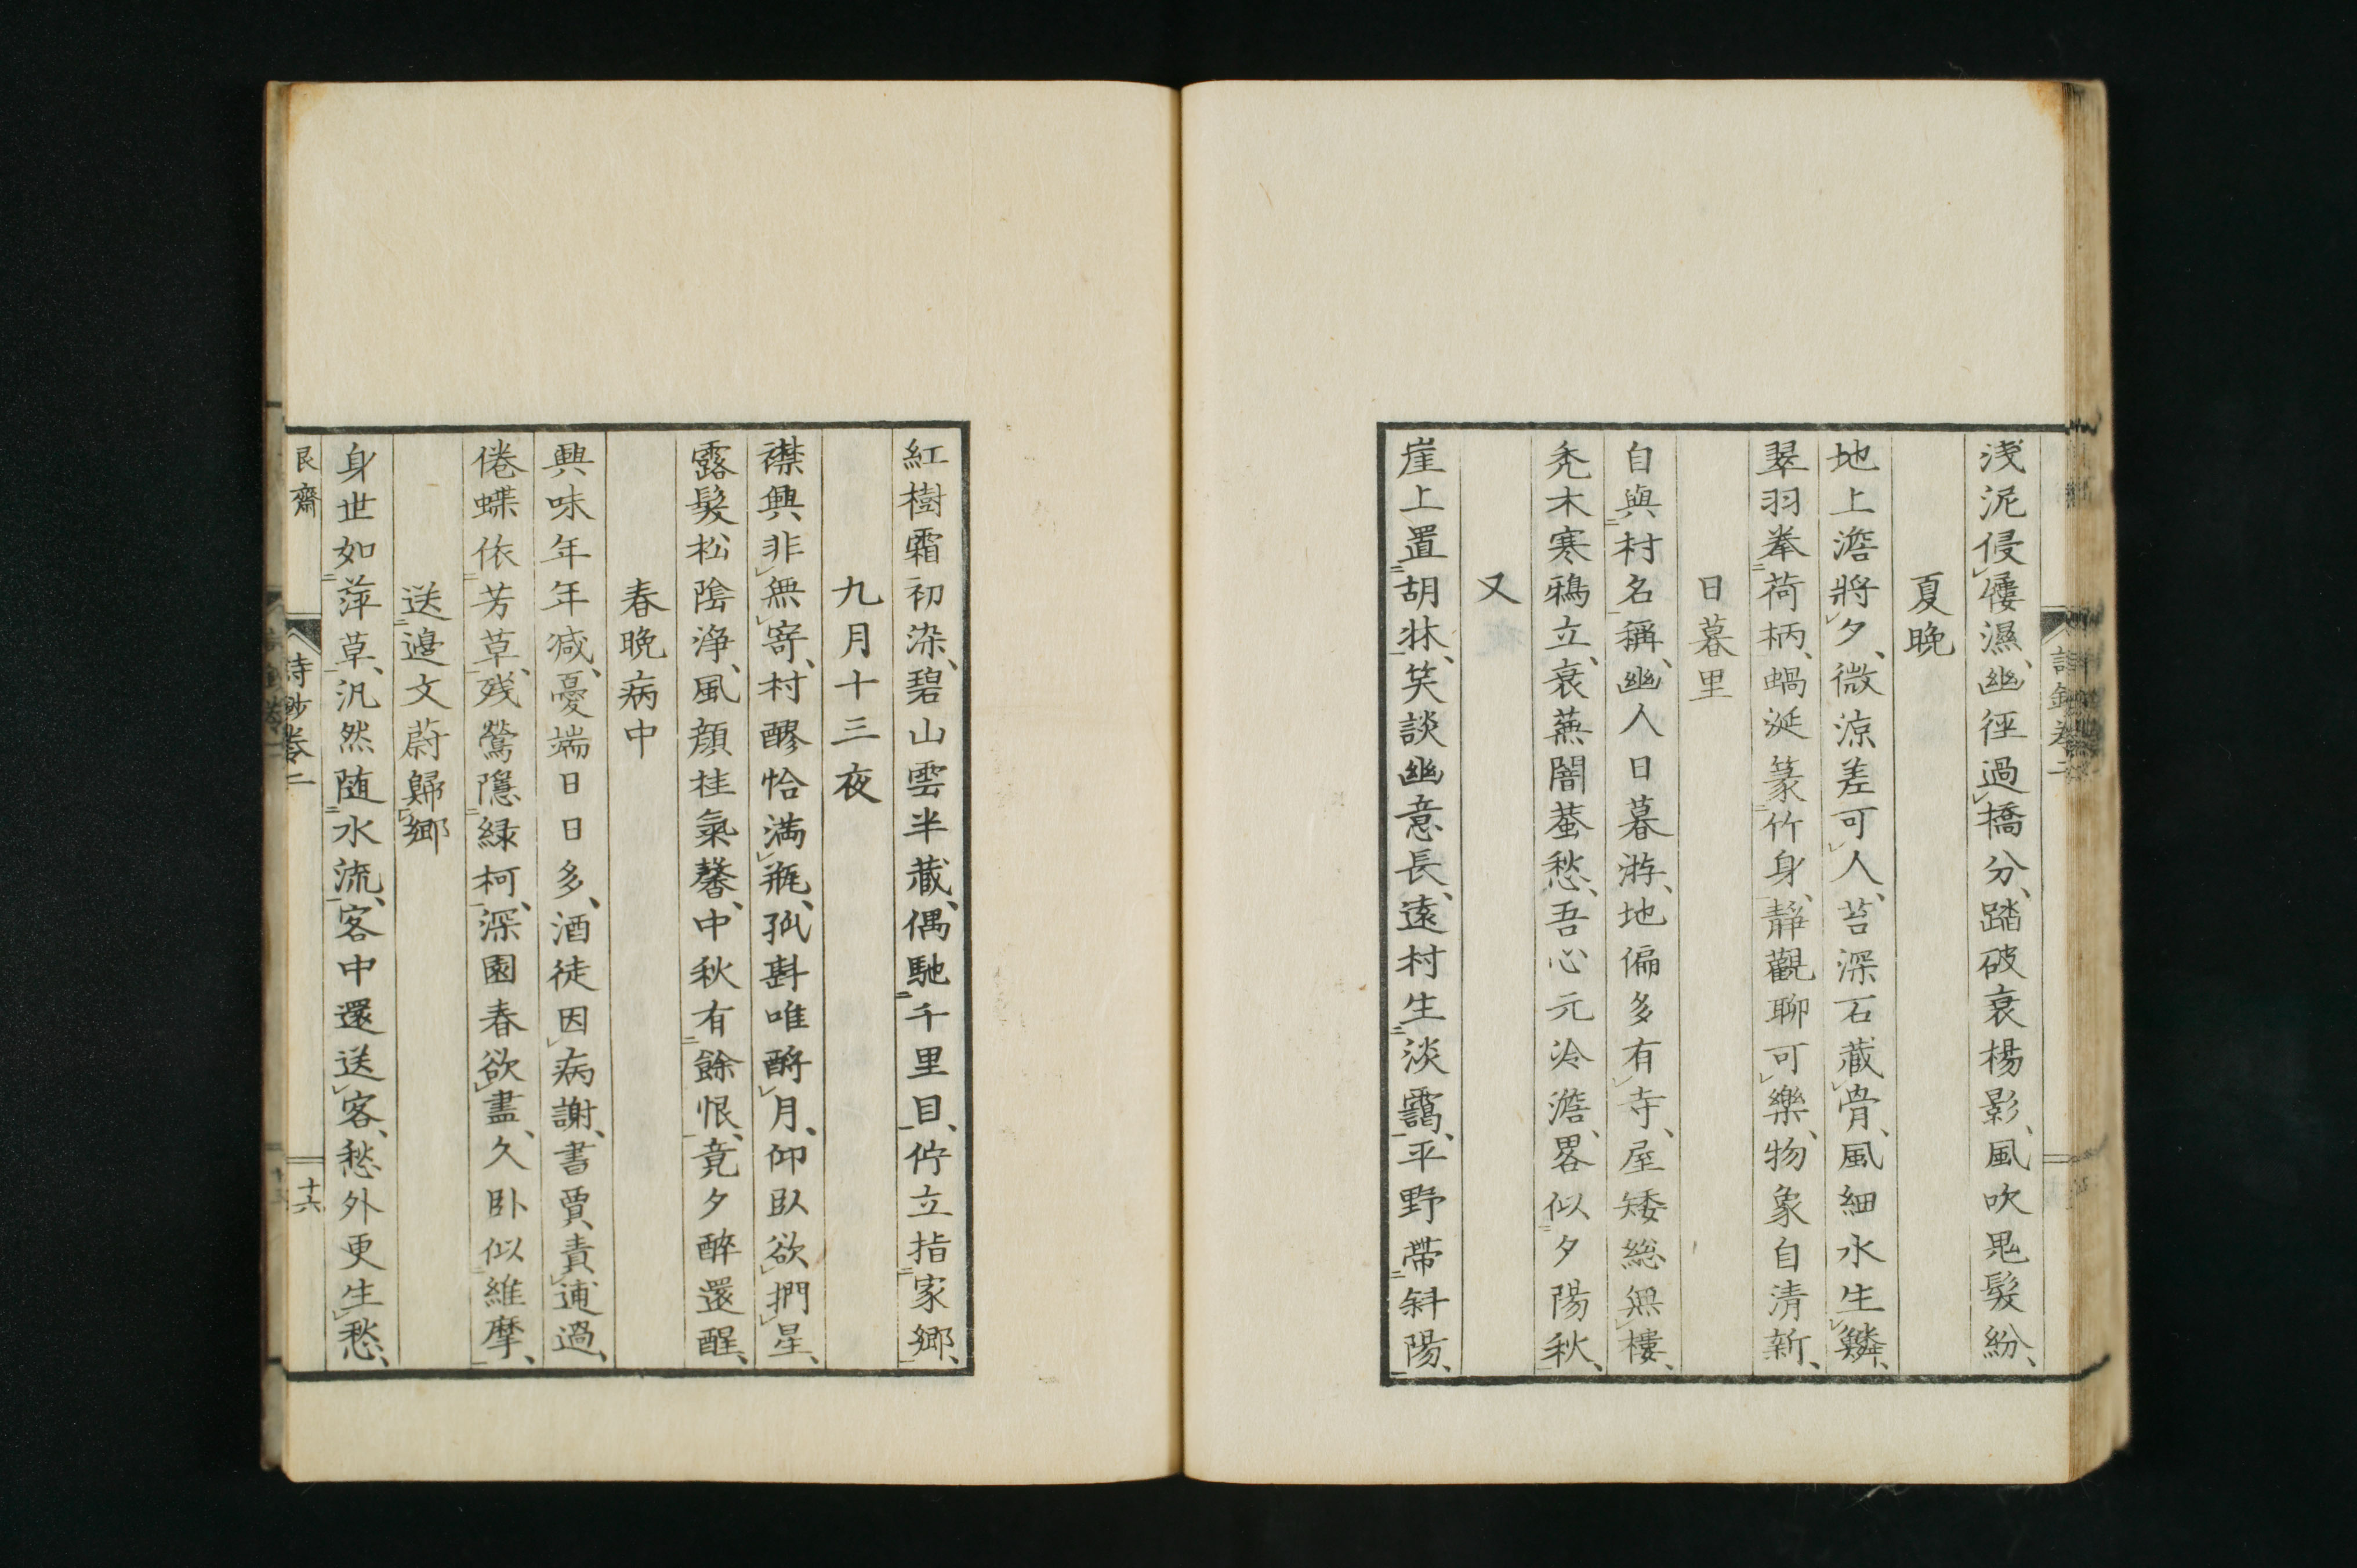 浅泥侵屨濕、幽徑過橋分、踏破衰楊影、風吹鬼髮紛、
夏晚
地上澹將夕、微涼差可人、苔深石藏骨、風細水生鱗、
翠羽拳荷柄、蝸涎篆竹身、靜觀聊可樂、物象自清新、
日暮里
自與村名稱、幽人日暮游、地偏多有寺、屋矮総無樓、
禿木寒鴉立、衰蕪闇蛬愁、吾心元冷澹、畧似夕陽秋、
又
崖上置胡牀、笑談幽意長、遠村生淡靄、平野帶斜陽、
詩鈔卷二
紅樹霜初染、碧山雲半藏、偶馳千里目、佇立指家鄉、
九月十三夜
襟興非無寄、村醪恰満瓶、孤斟唯酹月、仰臥欲捫星、
露髮松陰浄、風顏桂氣馨、中秋有餘恨、竟夕醉還醒、
春晚病中
興味年年減、憂端日日多、酒徒因病謝、書賈責逋過、
倦蝶依芳草、残鶯隱緑柯、深園春欲盡、久卧似維摩、
送邉文蔚歸鄉
身世如萍草、汎然随水流、客中還送客、愁外更生愁、
艮齋
詩鈔卷二
十六